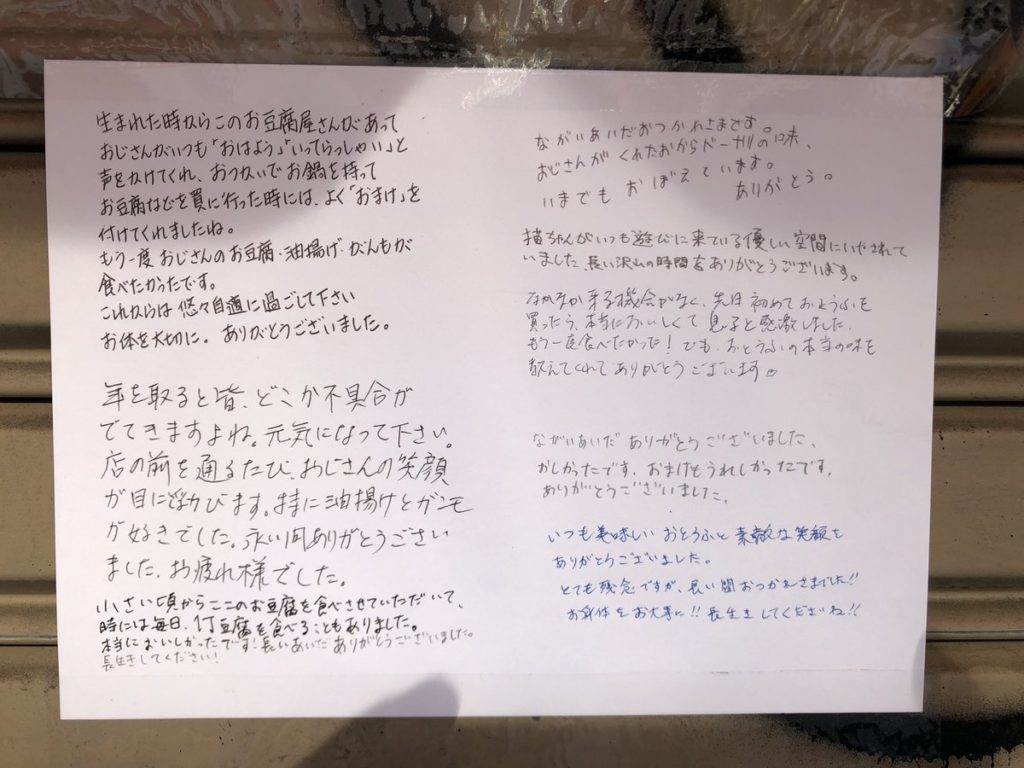 生まれた時からこのお豆腐屋さんがあって
おじさんがいつも「おはよう」「いってらっしゃい」と
声をかけてくれ、おつかいでお鍋を持って
お豆腐などを買に行った時には、よく「おまけ」を
付けてくれましたね。
もう一度おじさんのお豆腐・油揚げ・がんもが
食べたかったです。
これからは悠々自適に過ごして下さい
お体を大切に。ありがとうございました。
年を取ると皆、どこか不具合が
でてきますよね。元気になって下さい。
店の前を通るたび、おじさんの笑顔
が目に浮かびます。特に油揚げとガンモ
が好きでした。永い間ありがとうござい
ました。お疲れ様でした。
小さい頃からここのお豆腐を食べさせていただいて、
時には毎日、1丁豆腐を食べることもありました。
本当においしかったです!長いあいだありがとうございました。
長生きしてください!
ながいあいだおつかれさまです。
おじさんがくれたおからドーナツの味、
いまでもおぼえています。
ありがとう。
猫ちゃんがいつも遊びに来ている優しい空間にいやされて
いました。長い沢山の時間をありがとうございます。
なかなか来る機会がなく、先日初めておとうふを
買ったら、本当においしくて息子と感激しました。
もう一度食べたかった!でも、おとうふの本当の味を
教えてくれてありがとうございます
ながいあいだありがとうございました、
おまけもうれしかったです。
ありがとうございました。
いつも美味しいおとうふと素敵な笑顔を
ありがとうございました。
とても残念ですが、長い間おつかれさまでした!!
お身体をお大事に!!長生きしてくださいね!!